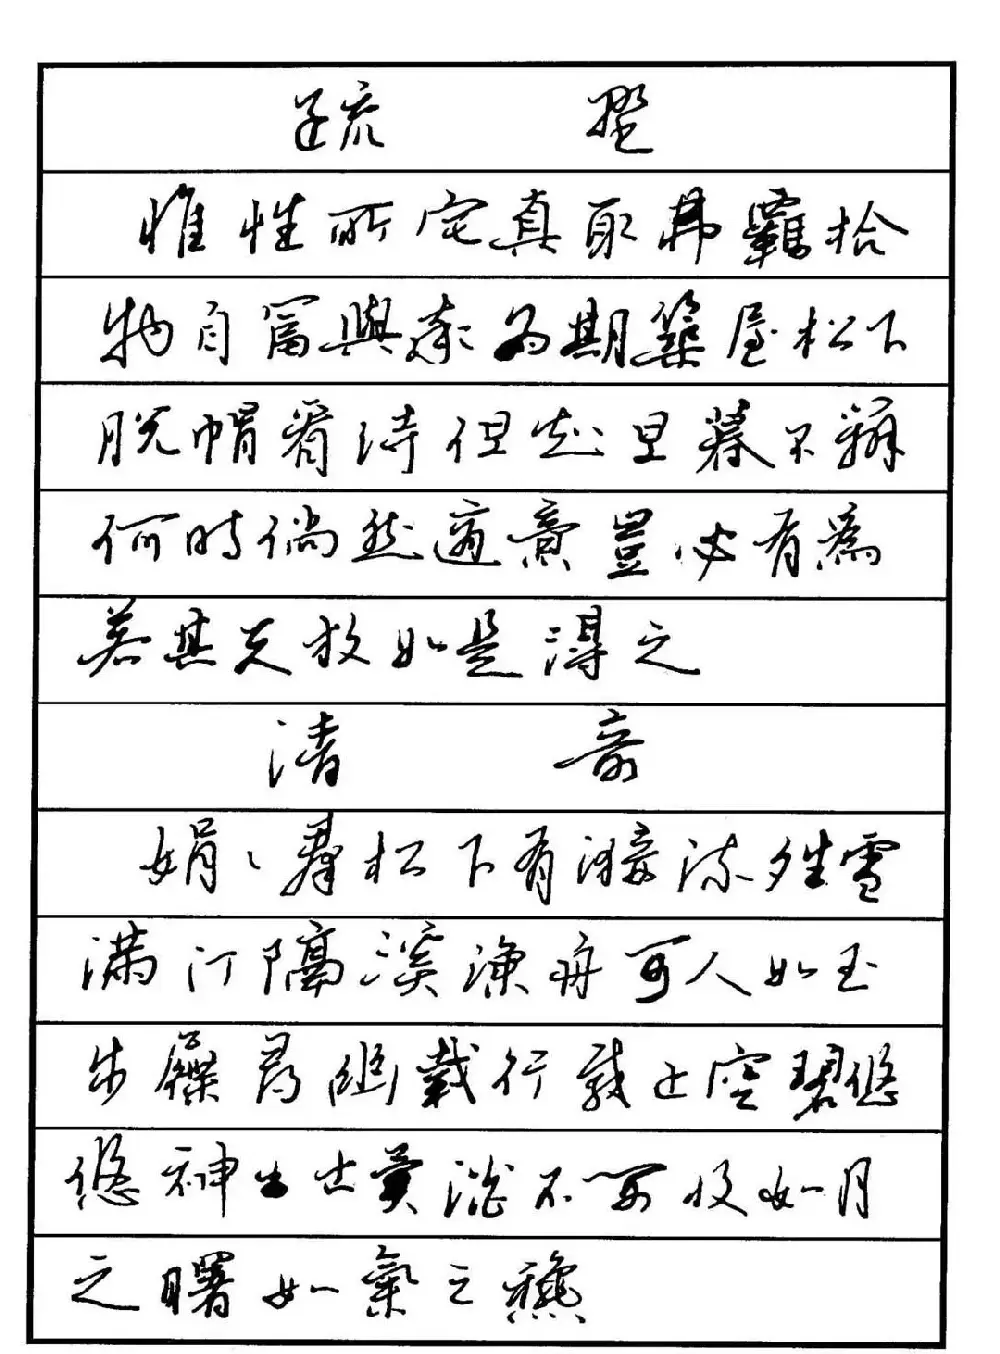 疏野
惟性所宅真取弗羈拾
物自富與率為期築屋松下
脱帽看詩但知旦暮不辨
何時倘然適意豈必有為
若其天放如是得之
清奇
娟娟群松下有漪流晴雪
滿汀隔溪漁舟可人如玉
步屧尋幽載行載止空碧悠
悠神出古異淡不可收如月
之曙如氣之秋